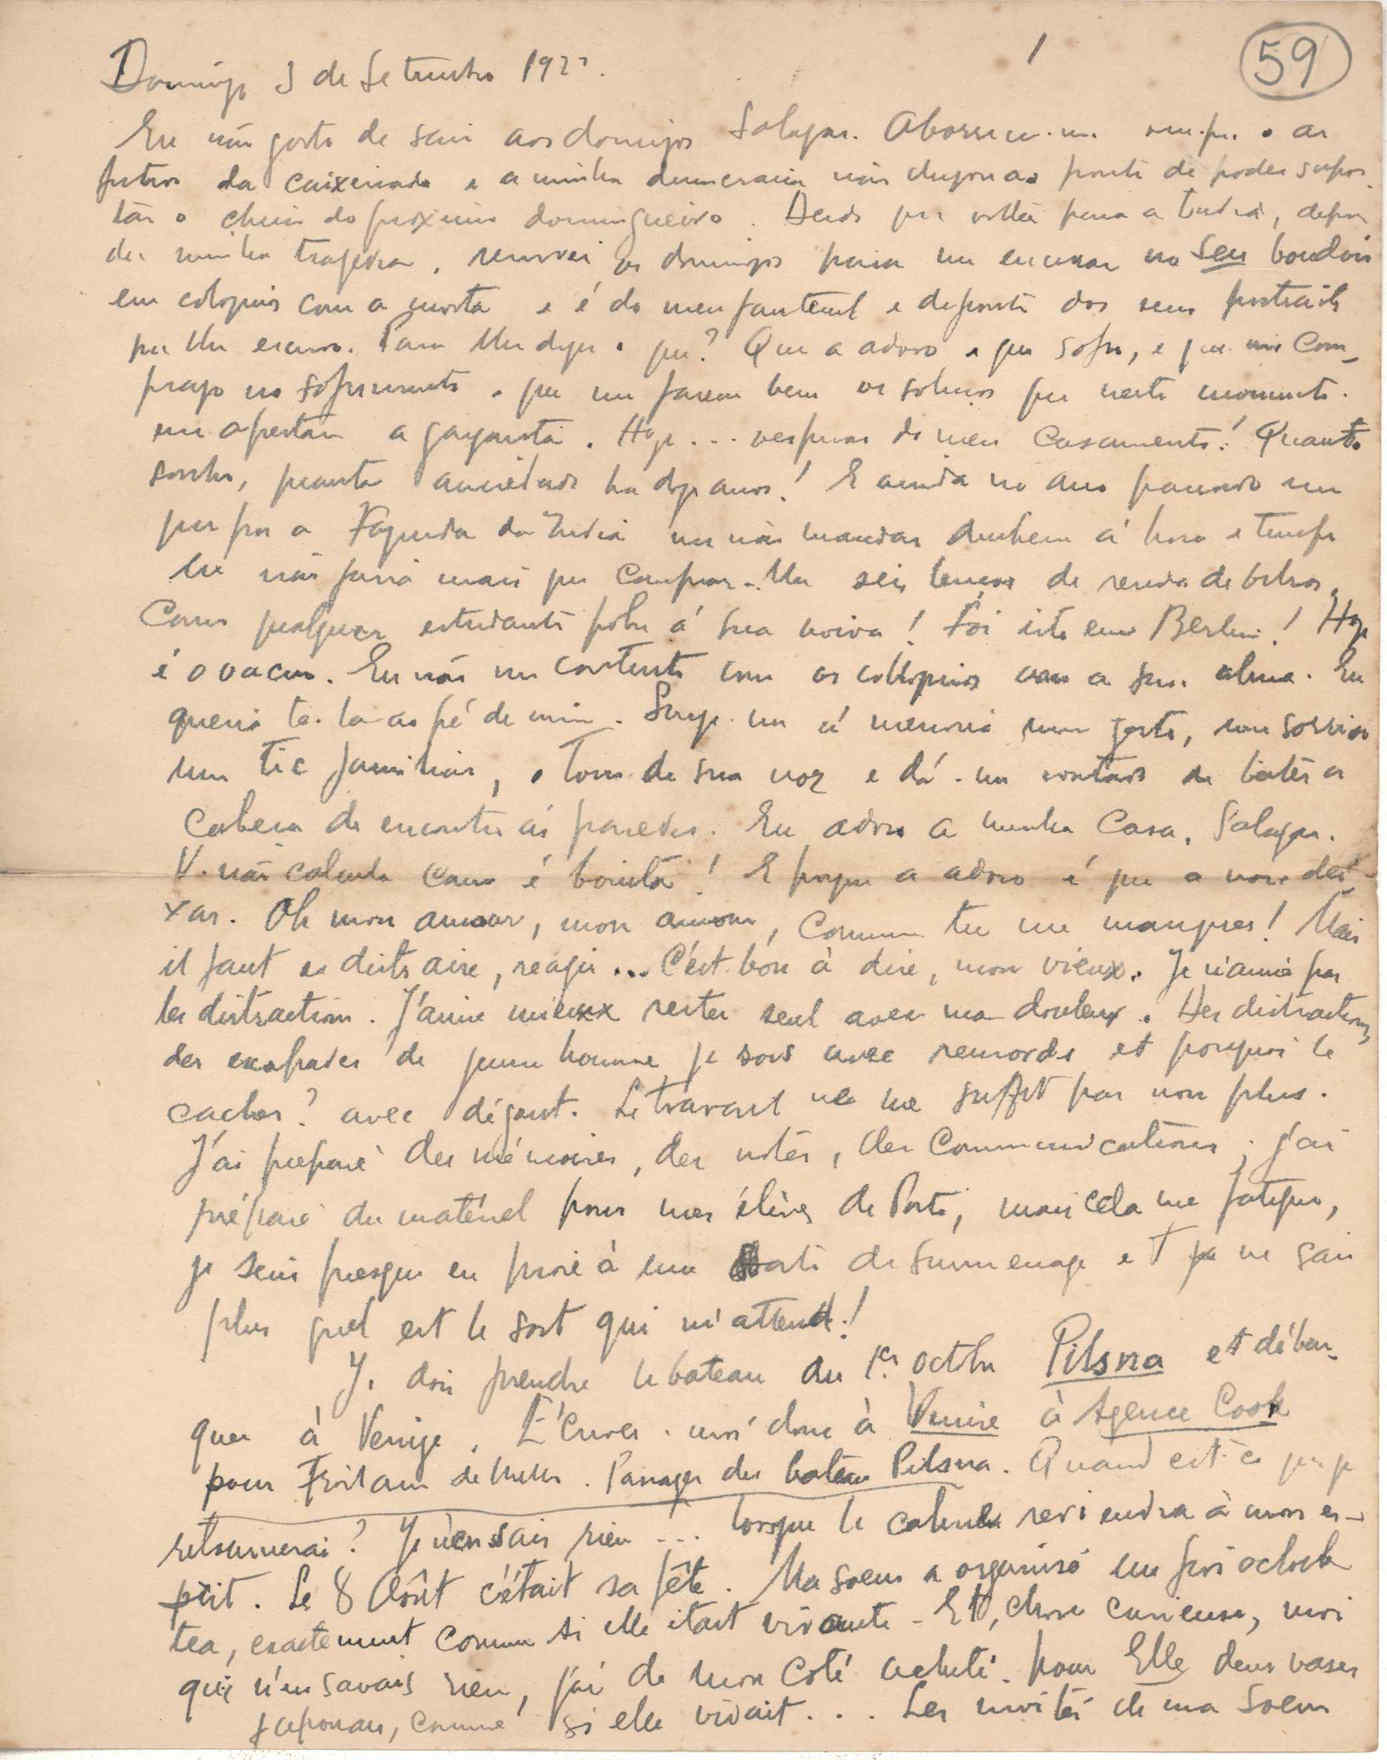 1
59
Domingo 3 de Setembro 192
Eu não gosto de sair aos domingos Salazar. Aborrece-me sempre o ar
da caixeirada e a minha democracia não chegou ao ponto de poder supor-
tar o cheiro do proximo domingueiro. Desde que voltei para a India, depois
da minha tragedia, reservei os domingos para me encerrar no seu boudoir
em coloquios com a morta e é do meu fauteuil e defronte dos seus portraits
que lhe escrevo. Para lhe dizer o que? Que a adoro e que sofro, e que me com-
prazo no sofrimento e que me fazem bem os soluços que neste momento
me apertam a garganta. Hoje... vesperas do meu casamento! Quanto
sonho, quanta anciedade ha dez anos! E ainda no ano passado em
que por a Fazenda da India me não mandar dinheiro á hora e tempo
eu não faria mais que comprar-lhe seis lenços de renda de bilros,
como qualquer estudante pobre á sua noiva! Foi isto em Berlim! Hoje
é o vacuo. Eu não me contento com os colloquios com a sua alma. Eu
queria te-la ao pé de mim. Surge-me á memoria um gesto, um sorriso
um tic familiar, o tom da sua voz e dá-me vontade de bater a
cabeça de encontro ás paredes. Eu adoro a minha Casa, Salazar.
V. não calcula como é bonita! E porque a adoro é que a vou dei-
xar. Oh mon amour, mon amour, comme tu me manques! Mais
il faut se distraire, réagir... C'est bon à dire, mon vieux. Je n'aime pas
les distractions. J'aime mieux rester seul avec ma douleur. Des distractions,
des escapades de jeune homme je sors avec remords et pourquoi le
cacher? avec dégout. Le travail ne me suffit pas non plus.
J'ai preparé des mémoires, des notes, des communications, j'ai
préparé du matériel pour mes élèves de Porto, mais cela me fatigue,
je suis presque en proie à une sorte de surmenage et je ne sais
plus quel est le sort qui m'attend!
Je dois prendre le bateau du 1er octbre Pilsna et débar-
quer à Venise. Écrivez-moi donc à Venise à Agence Cook
pour Froilano de Mello. Passager du bateau Pilsna. Quand est-ce que je
retournerai? Je n'en sais rien... lorsque le calme reviendra à mon es-
prit. Le 8 Août c'était sa fête. Ma soeur a organisé un five oclock
tea, exactement comme si elle était vivante. Et, chose curieuse, moi
qui n'en savais rien, j'ai de mon coté acheté pour Elle deux vases
japonais, comme si elle vivait... Les invités de ma soeur